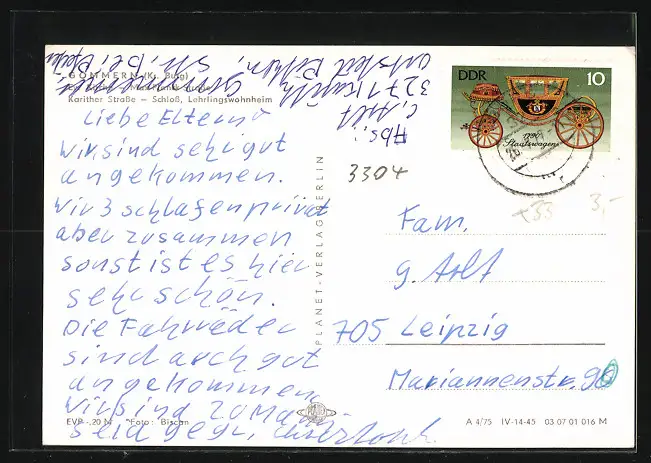 GOMMERN (Kr. Burg)
Karither Straße — Schloß, Lehrlingswohnheim
Abs.:
C. Arlt
3271
Liebe Eltern!
Wir sind sehr gut
angekommen.
Wir 3 schlafen privat
aber zusammen
sonst ist es hier
sehr schön.
Die Fahrräder
sind auch gut
angekommen
wir sind 20 Mann
seid gegr.
PLANET-VERLAG BERLIN
3304
DDR 10
1790
Staatswagen
x33 3,-
Fam.
G. Arlt
705 Leipzig
Mariannenstr. 90
EVP -,20 M Foto: Bischan
A 4/75 IV-14-45 03 07 01 016 M